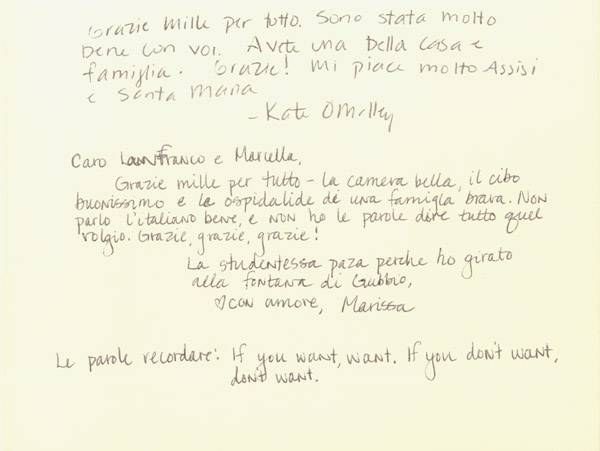 Grazie mille per tutto. Sono stata molto
bene con voi. Avete una bella casa e
famiglia. Grazie! Mi piace molto Assisi
e Santa Maria
- Kate O'Malley
Caro Lanfranco e Marcella,
Grazie mille per tutto - la camera bella, il cibo
buonissimo e la ospidalide de una famiglia brava. Non
parlo l'italiano bene, e non ho le parole dire tutto quel
volgio. Grazie, grazie, grazie!
La studentessa paza perche ho girato
alla fontana di Gubbio,
♡ con amore, Marissa
Le parole recordare: If you want, want. If you don't want,
don't want.